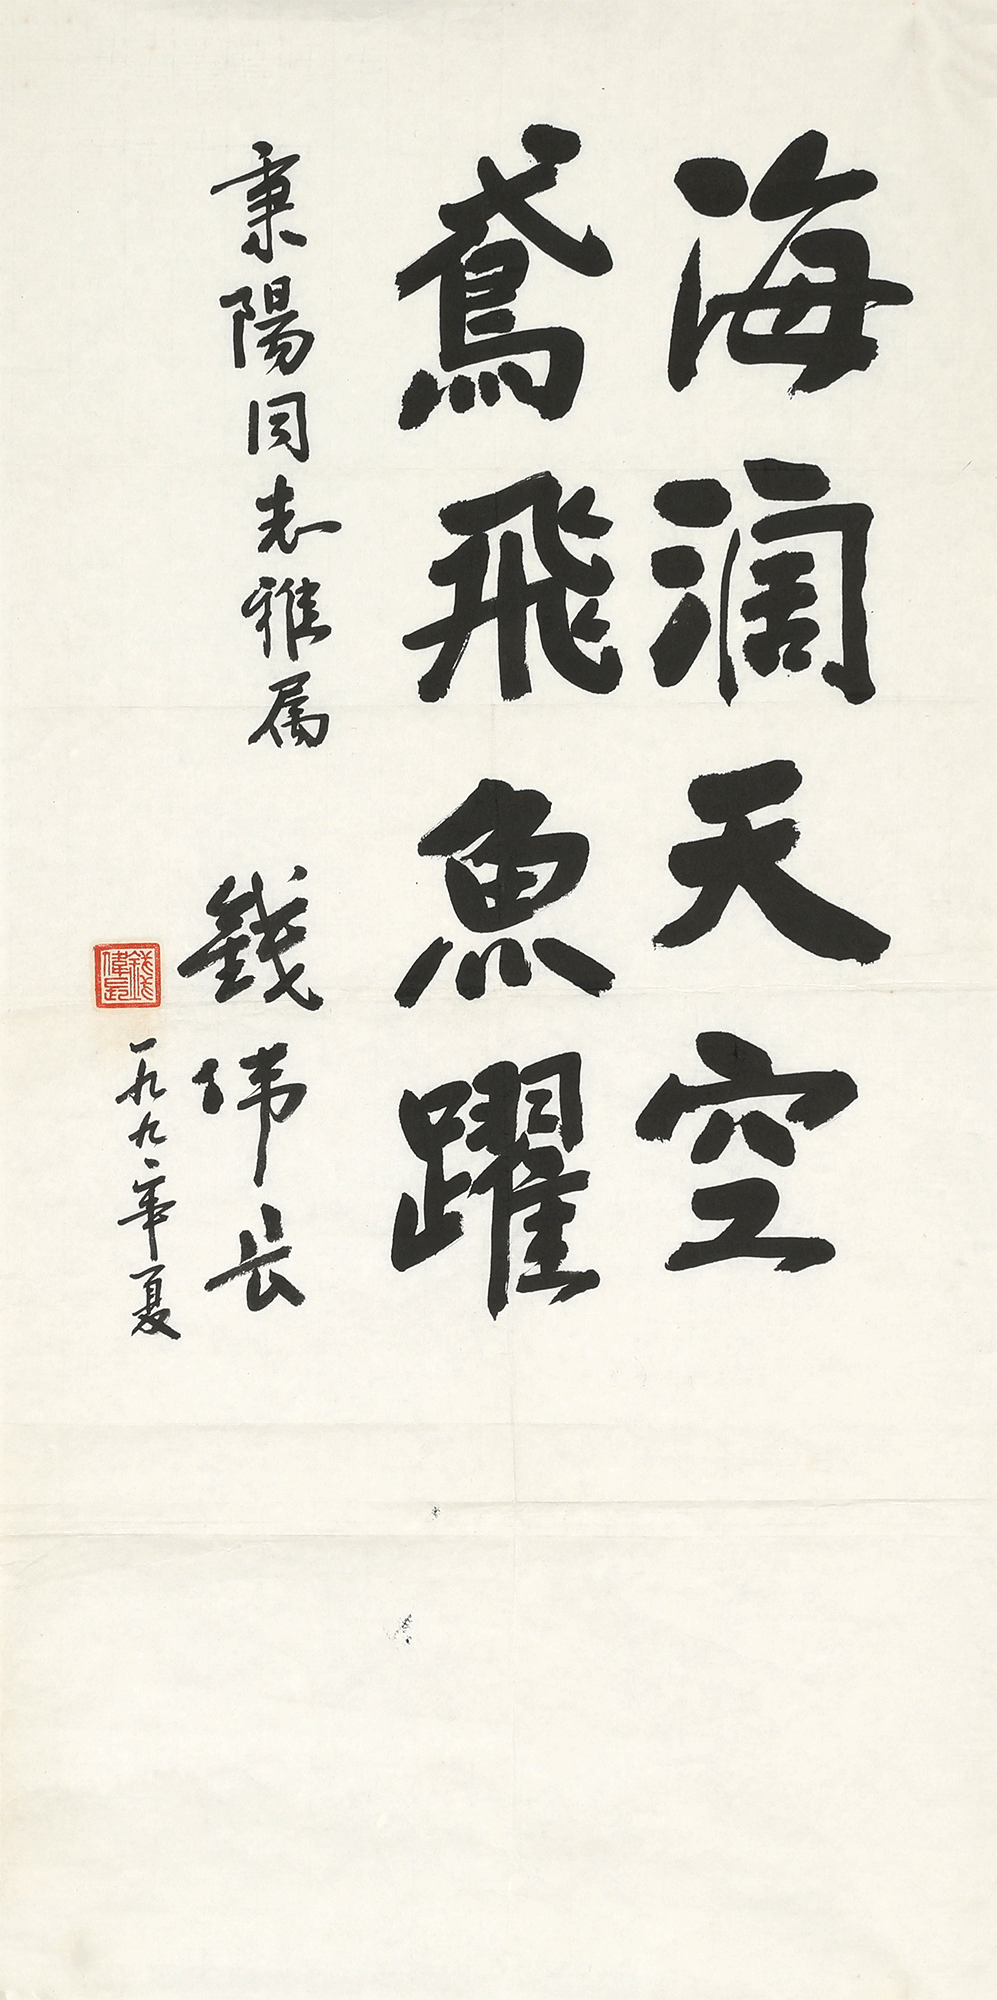 海濶天空
鳶飛魚躍
秉陽同志雅属
錢伟长
一九九二年夏
錢偉長